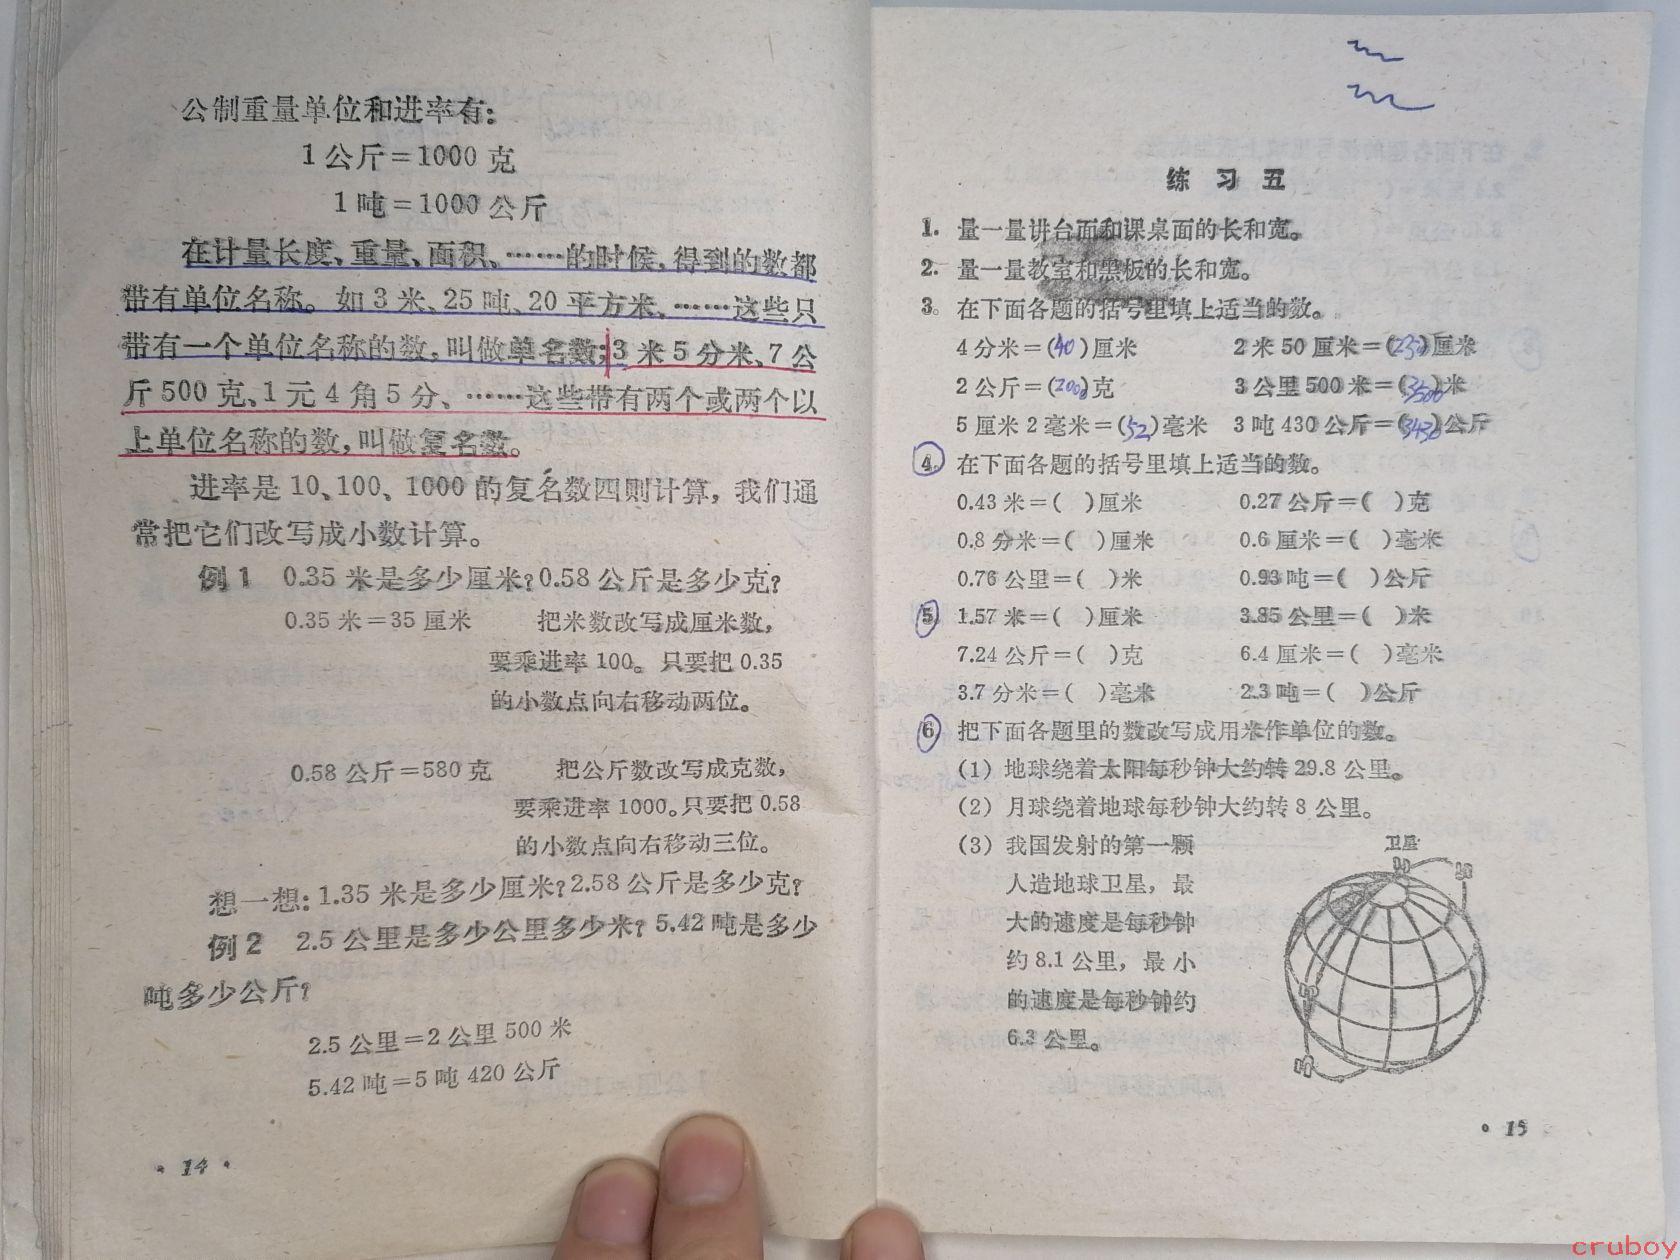 公制重量单位和进率有：
1公斤＝1000克
1吨＝1000公斤
在计量长度、重量、面积、……的时候，得到的数都
带有单位名称。如3米、25吨、20平方米、……这些只
带有一个单位名称的数，叫做单名数；3米5分米、7公
斤500克、1元4角5分、……这些带有两个或两个以
上单位名称的数，叫做复名数。
进率是10、100、1000的复名数四则计算，我们通
常把它们改写成小数计算。
例1 0.35米是多少厘米？0.58公斤是多少克？
0.35米＝35厘米 把米数改写成厘米数，
要乘进率100。只要把0.35
的小数点向右移动两位。
0.58公斤＝580克 把公斤数改写成克数，
要乘进率1000。只要把0.58
的小数点向右移动三位。
想一想：1.35米是多少厘米？2.58公斤是多少克？
例2 2.5公里是多少公里多少米？5.42吨是多少
吨多少公斤？
2.5公里＝2公里500米
5.42吨＝5吨420公斤
·14·
练习五
1. 量一量讲台面和课桌面的长和宽。
2. 量一量教室和黑板的长和宽。
3. 在下面各题的括号里填上适当的数。
4分米＝(40)厘米 2米50厘米＝(250)厘米
2公斤＝(2000)克 3公里500米＝(3500)米
5厘米2毫米＝(52)毫米 3吨430公斤＝(3430)公斤
4. 在下面各题的括号里填上适当的数。
0.43米＝( )厘米 0.27公斤＝( )克
0.8分米＝( )厘米 0.6厘米＝( )毫米
0.76公里＝( )米 0.93吨＝( )公斤
5. 1.57米＝( )厘米 3.85公里＝( )米
7.24公斤＝( )克 6.4厘米＝( )毫米
3.7分米＝( )毫米 2.3吨＝( )公斤
6. 把下面各题里的数改写成用米作单位的数。
(1) 地球绕着太阳每秒钟大约转29.8公里。
(2) 月球绕着地球每秒钟大约转3公里。
(3) 我国发射的第一颗
人造地球卫星，最
大的速度是每秒钟
约8.1公里，最小
的速度是每秒钟约
6.3公里。
卫星
·15
cruboy